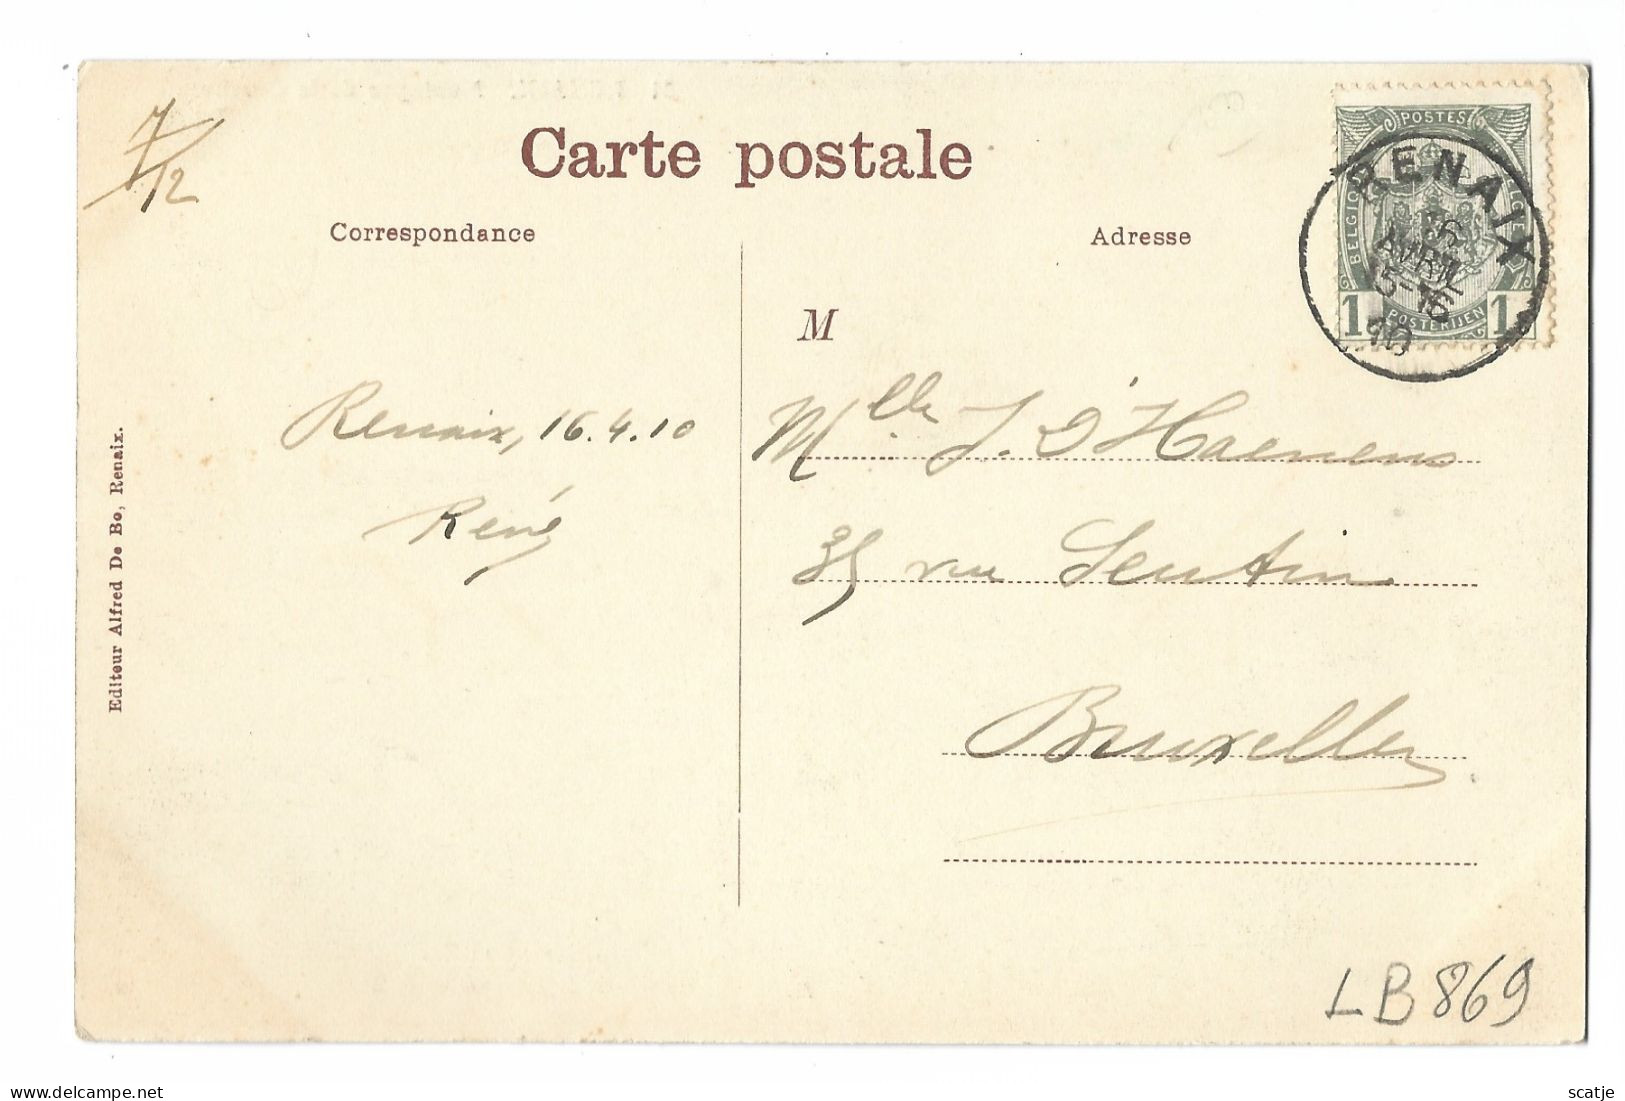 7/12
Carte postale
Correspondance
Adresse
POSTES
BELGIQUE
BELGIE
1
POSTERIJEN
1
RENAIX
16
AVRIL
15-16
10
M
Renaix, 16.4.10
René
Mlle J. D'Haenens
35 rue Seutin
Bruxelles
Editeur Alfred De Bo, Renaix.
LB869
scatje